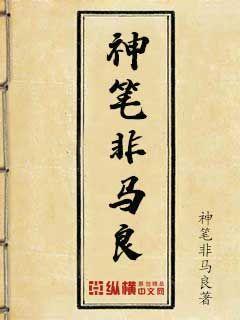 神笔非马良
纵横
原创精品
中文网
神笔非马良著